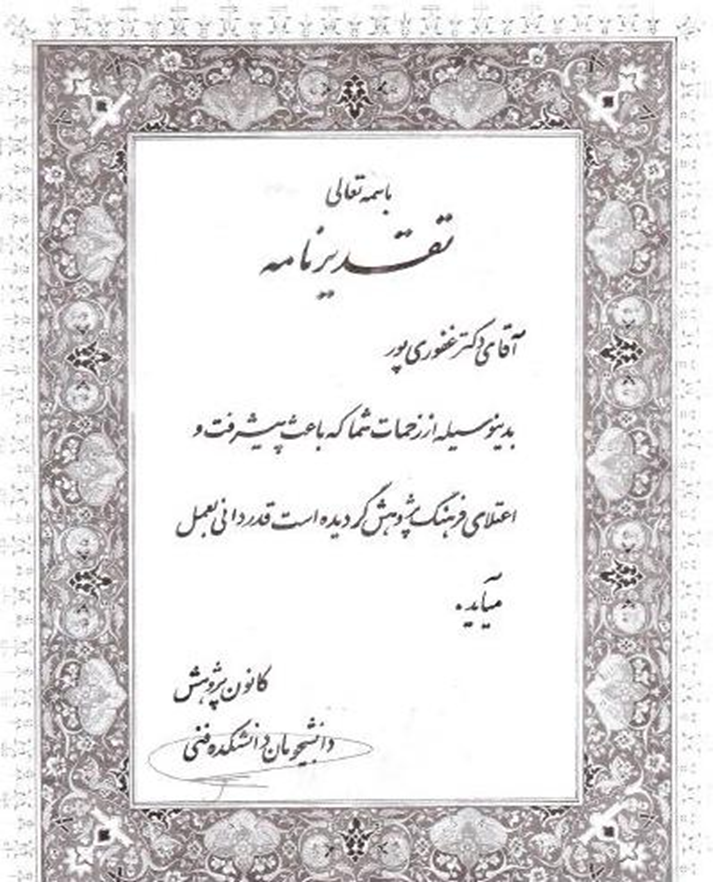 باسمه تعالی
تقدیرنامه
آقای دکتر غفوری پور
بدینوسیله از زحمات شما که باعث پیشرفت و
اعتلای فرهنگ پژوهش گردیده است قدردانی بعمل
میآید.
کانون پژوهش
دانشجویان دانشکده فنی